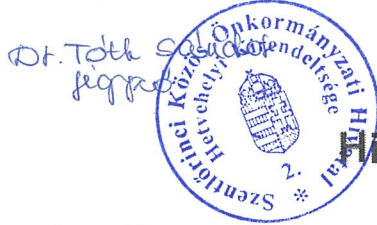 Dr. Tóth Sándor
jegyző
Szentlőrinci Közös Önkormányzati Hivatal *
Hetvehelyi Kirendeltsége
2.
Hi